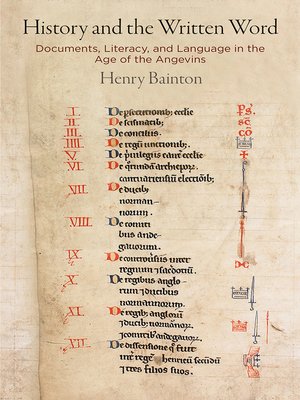 History and the Written Word
Documents, Literacy, and Language in the
Age of the Angevins
Henry Bainton
I. De psecutionib; ecclie
II. De scismatib; sc
III. De conciliis. cō
IIII. De regū unctionib;
V. De priuilegiis cant' ecclie
VI. De archiepor.
cantuariensiū electiōib;
VII. De ducib;
norman-
norum.
VIII. De comiti
bus ande-
gauorum.
IX. De inter
regnum ⁊ sacerdotiū.
X. De regibus anglo-
rum ⁊ ducibus
normannorum.
XI. De regib; anglorū
⁊ ducib; normānor.
⁊ comitib; andegauor.
XII. De dissensione q̄ fuit
int' regē henricū secūdū
⁊ tres filios suos.